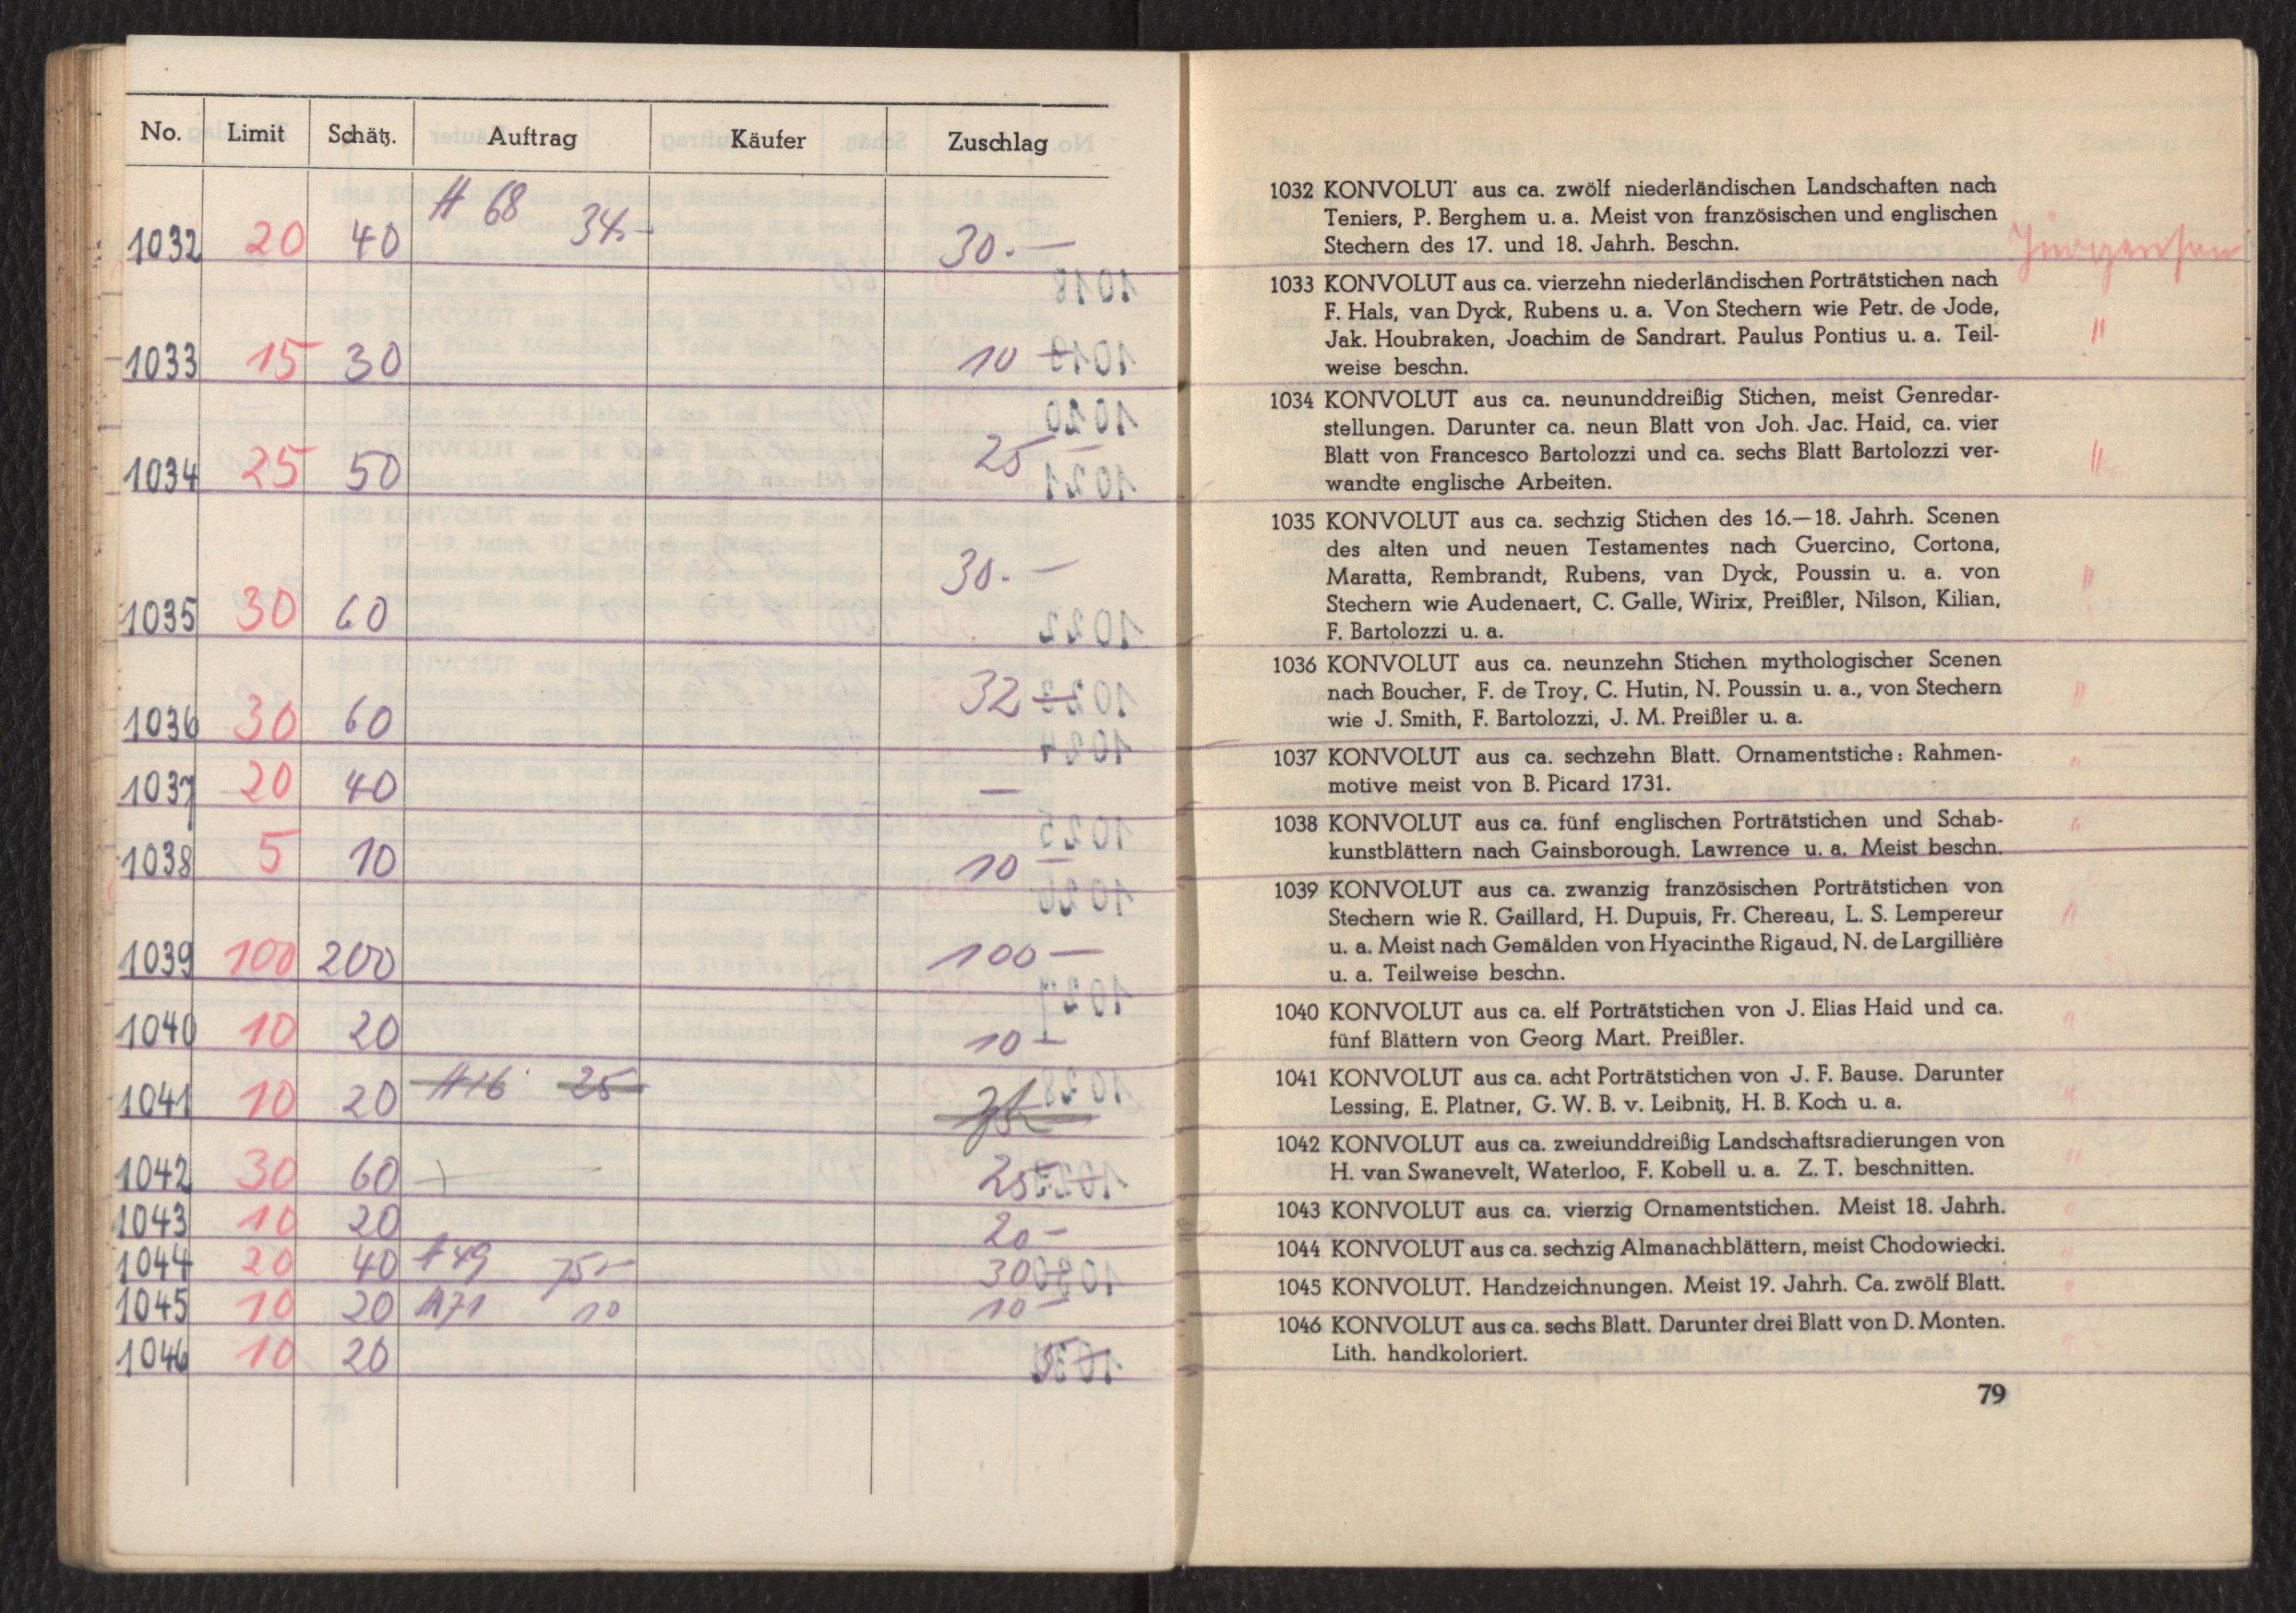 No. Limit Schätz. Auftrag Käufer Zuschlag
1032 20 40 # 68 34.- 30.—
1033 15 30 10 —
1034 25 50 25 —
1035 30 60 30.—
1036 30 60 32 —
1037 20 40 —
1038 5 10 10 —
1039 100 200 100 —
1040 10 20 10 —
1041 10 20 #16 25
1042 30 60 25
1043 10 20 20 —
1044 20 40 # 49 75.- 30
1045 10 20 #71 10 10 —
1046 10 20
1032 KONVOLUT aus ca. zwölf niederländischen Landschaften nach
Teniers, P. Berghem u. a. Meist von französischen und englischen
Stechern des 17. und 18. Jahrh. Beschn. Jürgensen
1033 KONVOLUT aus ca. vierzehn niederländischen Porträtstichen nach
F. Hals, van Dyck, Rubens u. a. Von Stechern wie Petr. de Jode,
Jak. Houbraken, Joachim de Sandrart. Paulus Pontius u. a. Teil- "
weise beschn.
1034 KONVOLUT aus ca. neununddreißig Stichen, meist Genredar-
stellungen. Darunter ca. neun Blatt von Joh. Jac. Haid, ca. vier
Blatt von Francesco Bartolozzi und ca. sechs Blatt Bartolozzi ver- "
wandte englische Arbeiten.
1035 KONVOLUT aus ca. sechzig Stichen des 16.—18. Jahrh. Scenen
des alten und neuen Testamentes nach Guercino, Cortona,
Maratta, Rembrandt, Rubens, van Dyck, Poussin u. a. von "
Stechern wie Audenaert, C. Galle, Wirix, Preißler, Nilson, Kilian,
F. Bartolozzi u. a.
1036 KONVOLUT aus ca. neunzehn Stichen mythologischer Scenen
nach Boucher, F. de Troy, C. Hutin, N. Poussin u. a., von Stechern "
wie J. Smith, F. Bartolozzi, J. M. Preißler u. a.
1037 KONVOLUT aus ca. sechzehn Blatt. Ornamentstiche: Rahmen- "
motive meist von B. Picard 1731.
1038 KONVOLUT aus ca. fünf englischen Porträtstichen und Schab- "
kunstblättern nach Gainsborough. Lawrence u. a. Meist beschn.
1039 KONVOLUT aus ca. zwanzig französischen Porträtstichen von
Stechern wie R. Gaillard, H. Dupuis, Fr. Chereau, L. S. Lempereur "
u. a. Meist nach Gemälden von Hyacinthe Rigaud, N. de Largillière
u. a. Teilweise beschn.
1040 KONVOLUT aus ca. elf Porträtstichen von J. Elias Haid und ca. "
fünf Blättern von Georg Mart. Preißler.
1041 KONVOLUT aus ca. acht Porträtstichen von J. F. Bause. Darunter "
Lessing, E. Platner, G. W. B. v. Leibnitz, H. B. Koch u. a.
1042 KONVOLUT aus ca. zweiunddreißig Landschaftsradierungen von "
H. van Swanevelt, Waterloo, F. Kobell u. a. Z. T. beschnitten.
1043 KONVOLUT aus ca. vierzig Ornamentstichen. Meist 18. Jahrh. "
1044 KONVOLUT aus ca. sechzig Almanachblättern, meist Chodowiecki. "
1045 KONVOLUT. Handzeichnungen. Meist 19. Jahrh. Ca. zwölf Blatt. "
1046 KONVOLUT aus ca. sechs Blatt. Darunter drei Blatt von D. Monten. "
Lith. handkoloriert.
79